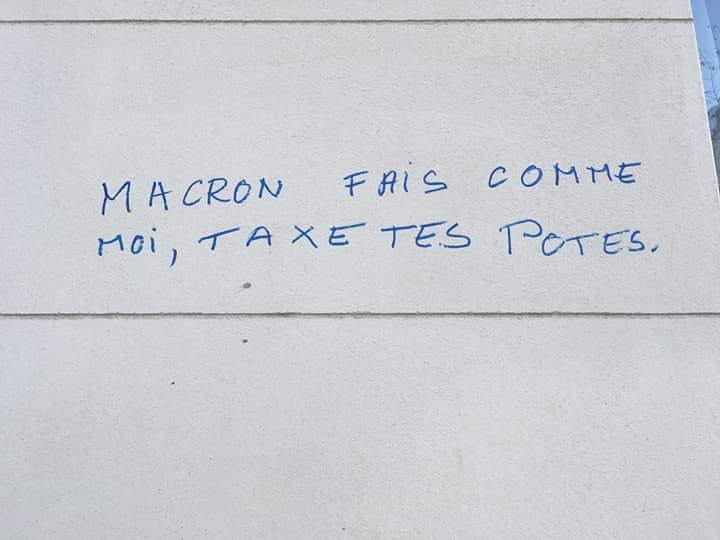 MACRON FAIS COMME
MOI, TAXE TES POTES.